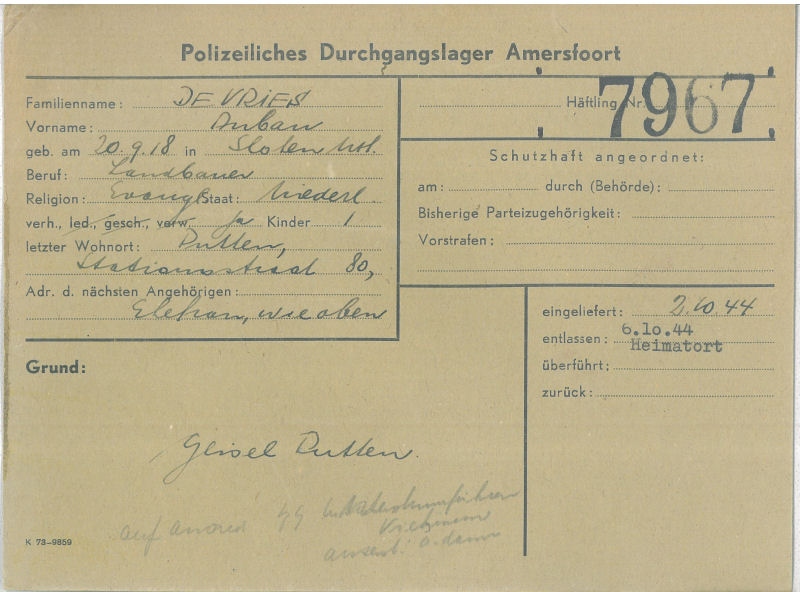 Polizeiliches Durchgangslager Amersfoort
Familienname: DE VRIES
Vorname:
geb. am 20.9.18 in Sloten
Beruf: Landbauer
Religion: Evang. Staat: Niederl.
verh., led., gesch., verw. ja Kinder 1
letzter Wohnort: Putten,
Stationsstraat 80,
Adr. d. nächsten Angehörigen:
Ehefrau, wie oben
Häftling Nr. 7967
Schutzhaft angeordnet:
am: durch (Behörde):
Bisherige Parteizugehörigkeit:
Vorstrafen:
eingeliefert: 2.10.44
entlassen: 6.10.44
Heimatort
überführt:
zurück:
Grund:
Geisel Putten.
auf
K 73-9859